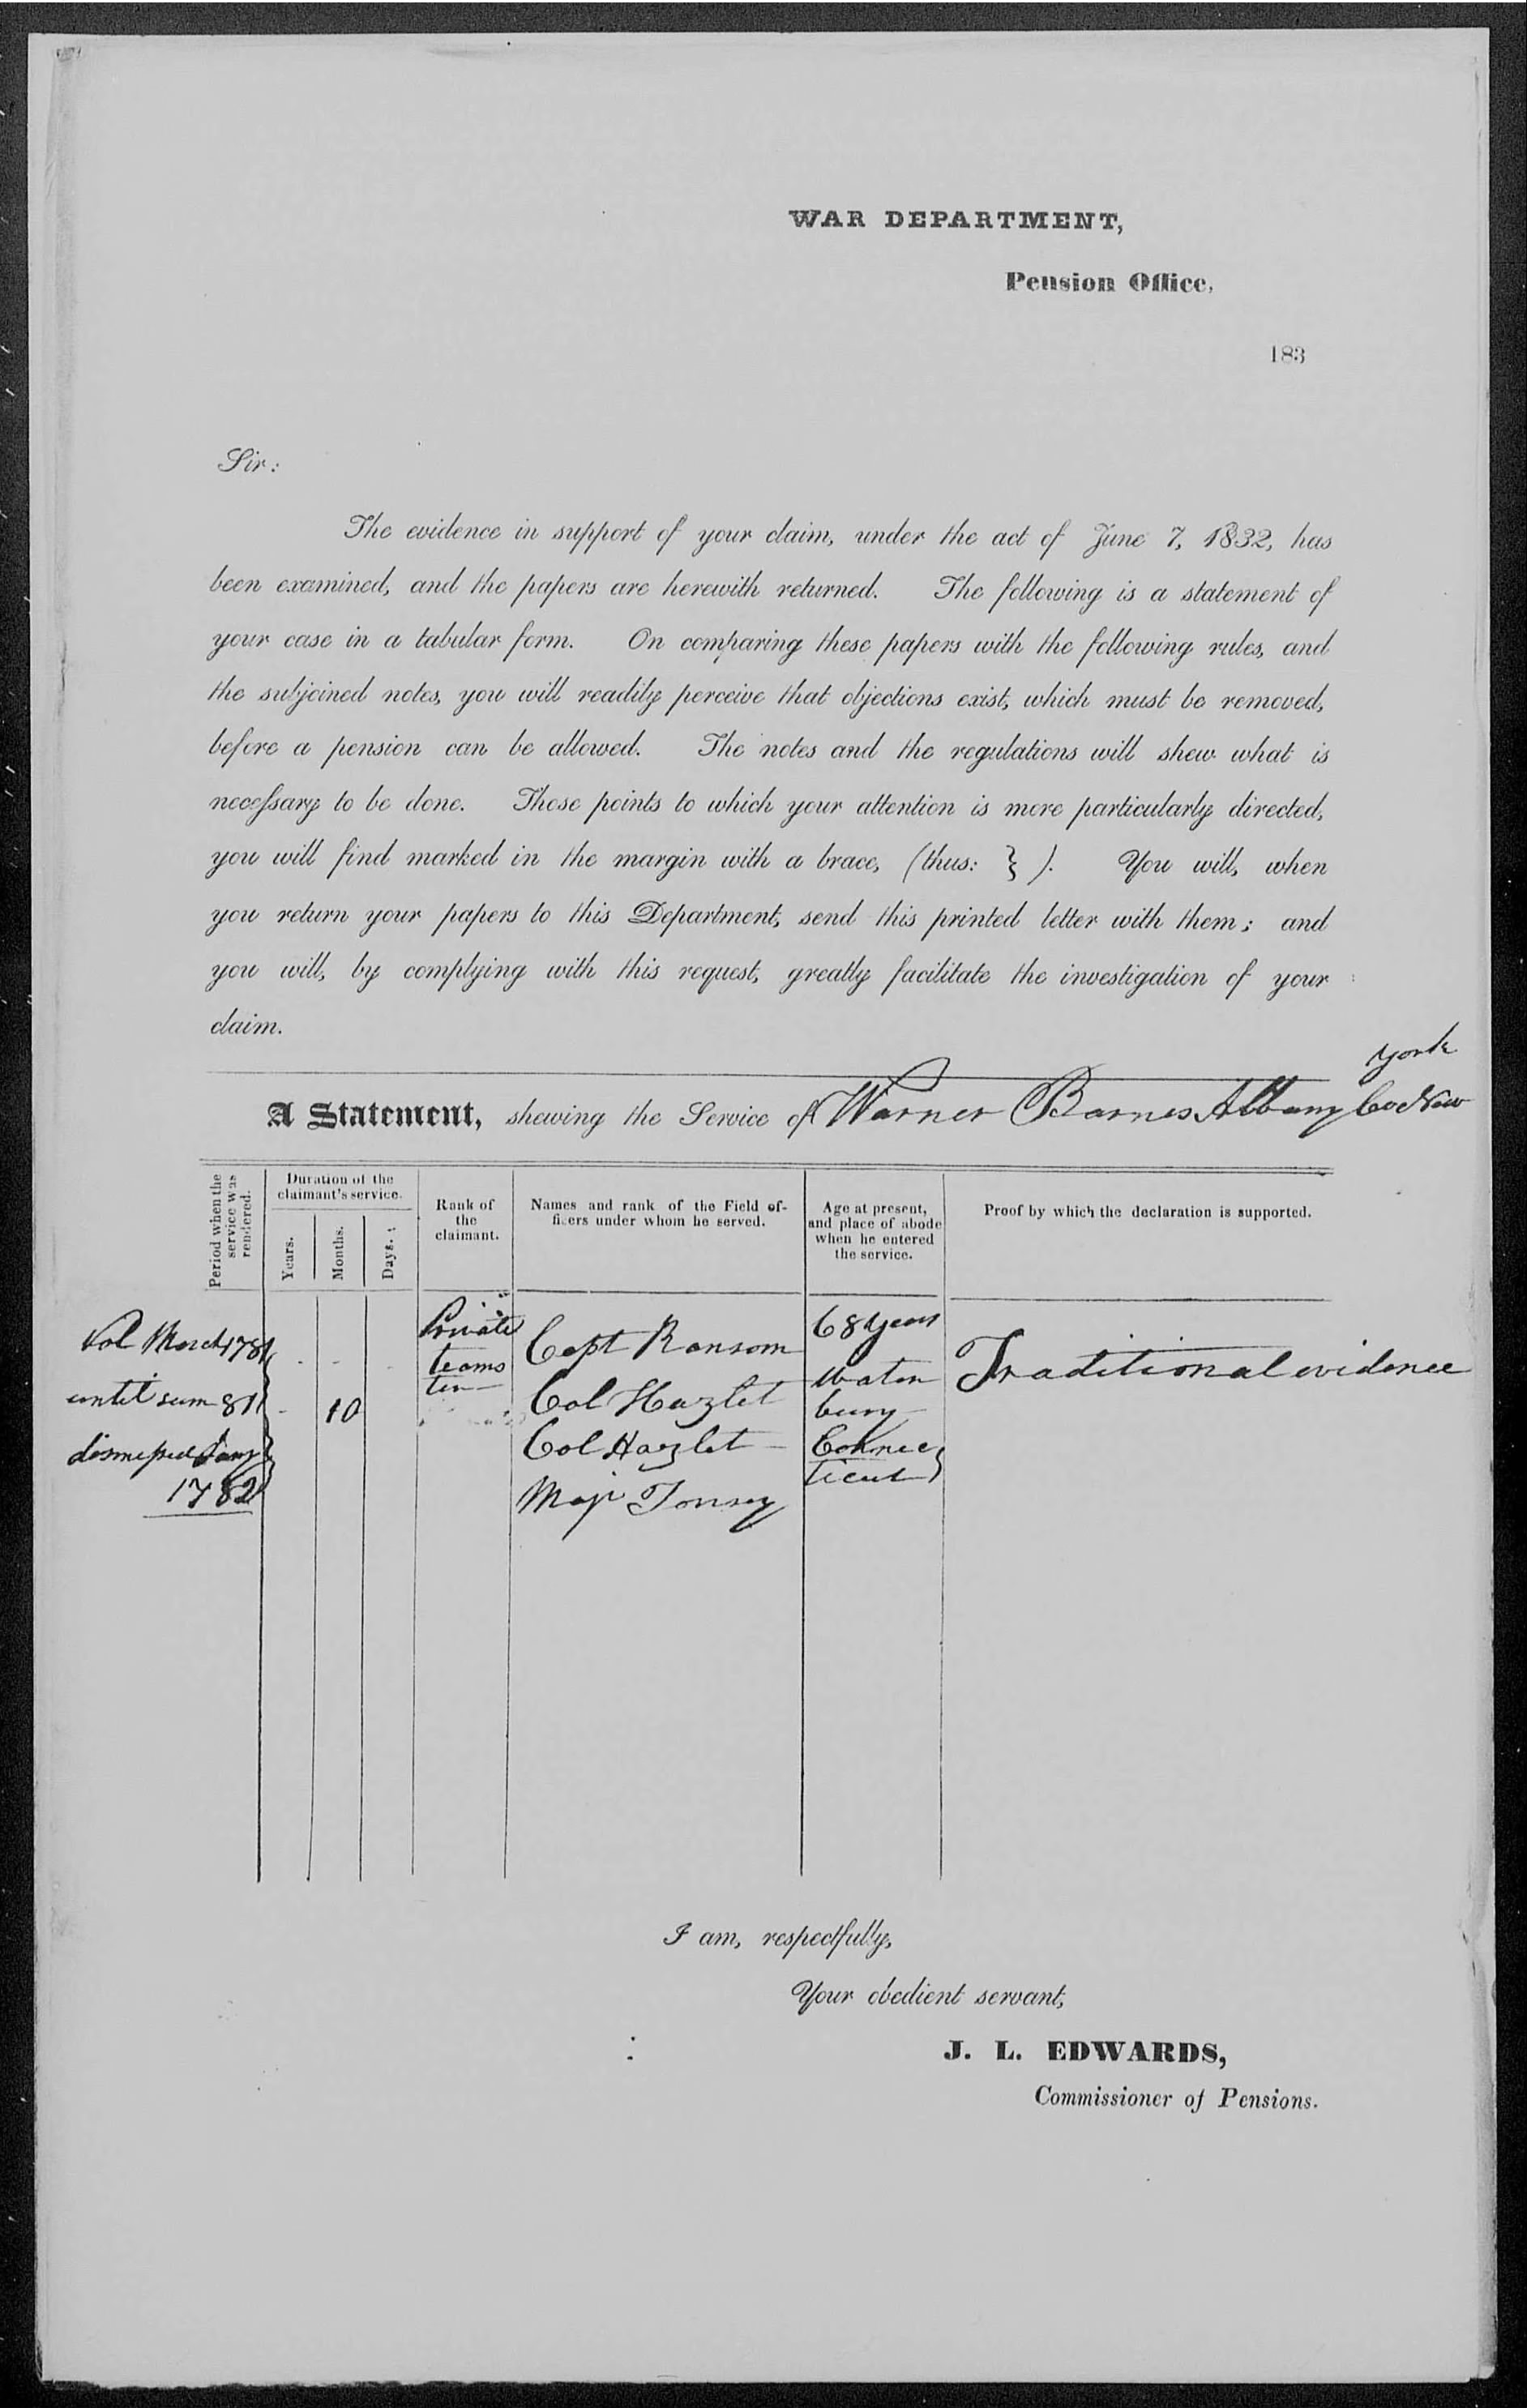 WAR DEPARTMENT,
Pension Office,
183
Sir:
The evidence in support of your claim, under the act of June 7, 1832, has
been examined, and the papers are herewith returned. The following is a statement of
your case in a tabular form. On comparing these papers with the following rules, and
the subjoined notes, you will readily perceive that objections exist, which must be removed,
before a pension can be allowed. The notes and the regulations will shew what is
necessary to be done. Those points to which your attention is more particularly directed,
you will find marked in the margin with a brace, (thus: } ). You will, when
you return your papers to this Department, send this printed letter with them; and
you will, by complying with this request, greatly facilitate the investigation of your
claim.
A Statement, shewing the Service of Warner Barnes Albany Co New
York
Period when the service was rendered.
Duration of the claimant's service.
Years.
Months.
Days.
Rank of the claimant.
Names and rank of the Field officers under whom he served.
Age at present, and place of abode when he entered the service.
Proof by which the declaration is supported.
Vol March 1781
until sum 81
dismissed Jany
1782
10
Private
teams
ter
Capt Ransom
Col Hazlet
Col Hazlet
Maj Tousey
68 years
Water
bury
Connec
ticut
Traditional evidence
I am, respectfully,
Your obedient servant,
J. L. EDWARDS,
Commissioner of Pensions.